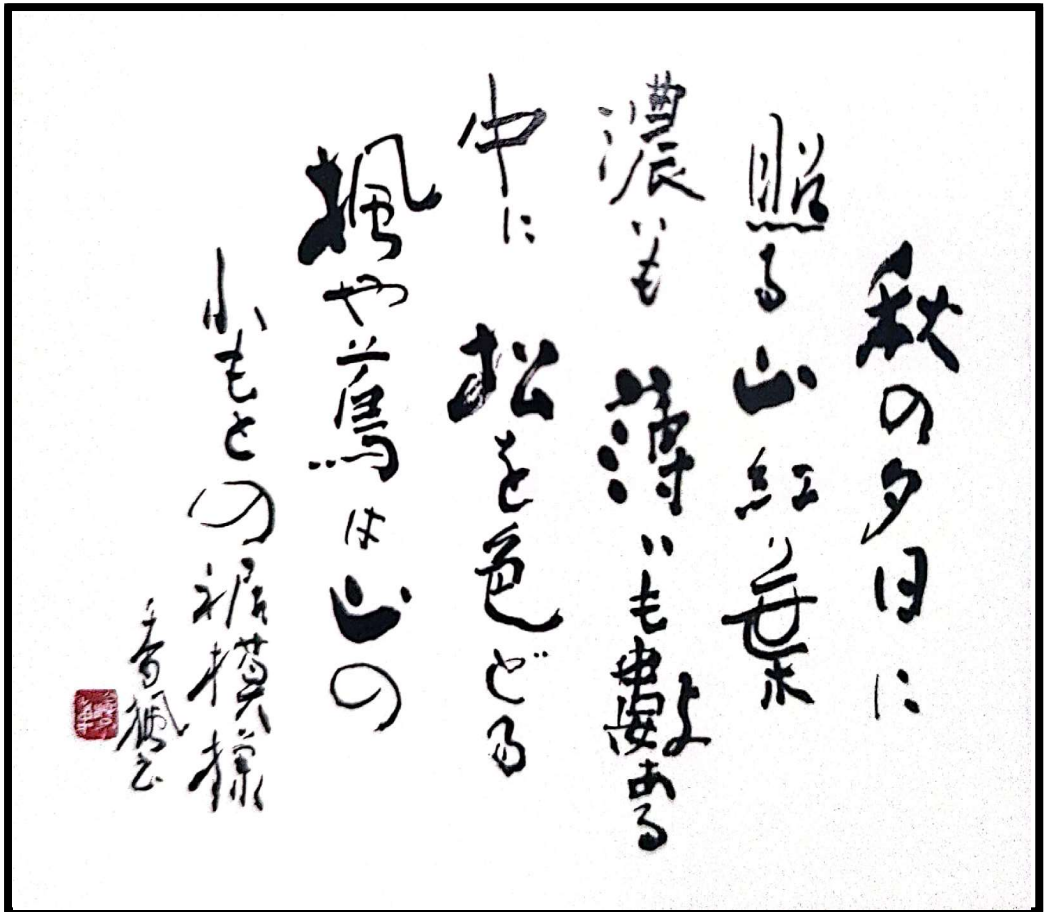 秋の夕日に
照る山紅葉
濃いも薄いも數ある
中に松を色どる
楓や蔦は山の
ふもとの裾模様
香楓書